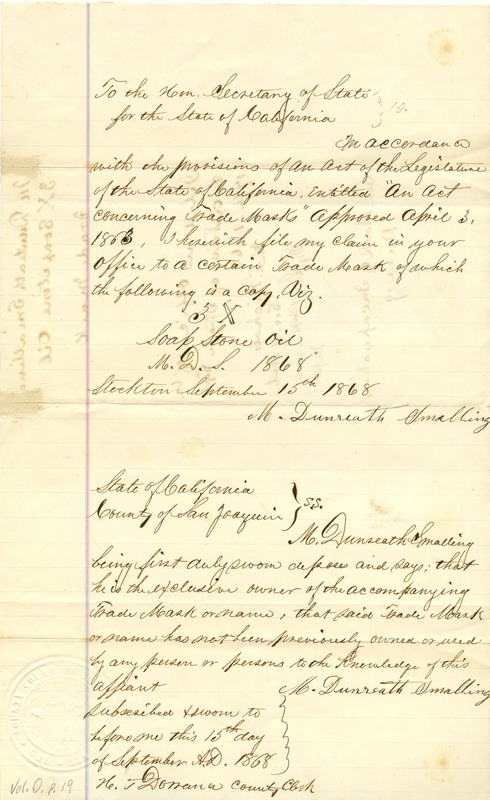 To the Hon. Secretary of State
for the State of California
In accordance
with the provisions of an Act of the Legislature
of the State of California, Entitled "An Act
concerning Trade Marks" Approved April 3,
1863, I herewith file my claim in your
Office to a certain Trade Mark of which
the following is a copy, Viz.
3 X
Soap Stone Oil
M. D. S. 1868
Stockton September 15th 1868
M. Dunreath Smalling
State of California
County of San Joaquin } S.S.
M. Dunreath Smalling
being first duly sworn deposes and says; that
he is the exclusive owner of the accompanying
Trade Mark or name, that said Trade Mark
or name has not been previously owned or used
by any person or persons to the Knowledge of this
affiant
M. Dunreath Smalling
subscribed & sworn to
before me this 15th day
of September A.D. 1868
County Clerk
Vol. O, p. 19